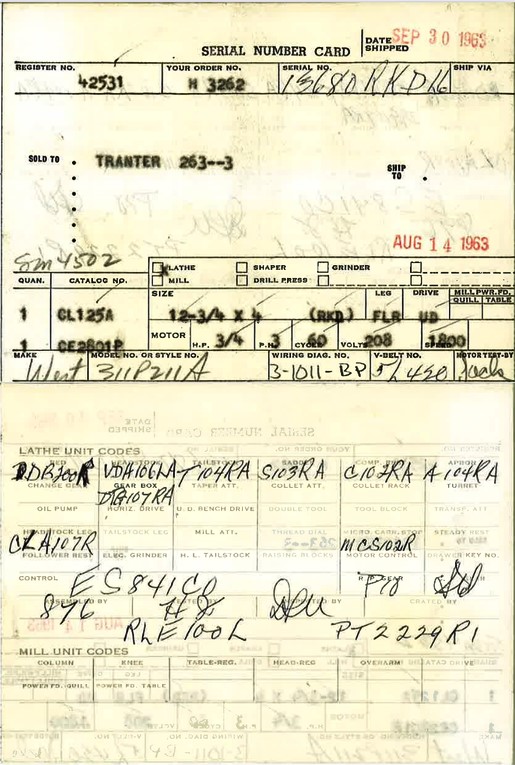 SERIAL NUMBER CARD
DATE SHIPPED SEP 30 1963
REGISTER NO. YOUR ORDER NO. SERIAL NO. SHIP VIA
42531 H 3262 13680RKDL6
SOLD TO TRANTER 263--3 SHIP TO
AUG 14 1963
Sm 4502
LATHE SHAPER GRINDER
QUAN. CATALOG NO. MILL DRILL PRESS
SIZE LEG DRIVE MILL PWR. FD. QUILL TABLE
1 CL125A 12-3/4 X 4 (RKD) FLR UD
1 CE2801P MOTOR H.P. 3/4 P.H. 3 CYCLE 60 VOLTS 208 SPEED 1800
MAKE MODEL NO. OR STYLE NO. WIRING DIAG. NO. V-BELT NO. MOTOR TEST-BY
West 311P211A 3-1011-BP 5/L420
LATHE UNIT CODES
VDA106LA T104RA S103RA C102RA A104RA
CHANGE GEAR GEAR BOX TAPER ATT. COLLET ATT. COLLET RACK TURRET
DG107RA
OIL PUMP HORIZ. DRIVE U. D. BENCH DRIVE DOUBLE TOOL COLLET TOOL TRANSP. ATT
HEADSTOCK LEG TAILSTOCK LEG MILL ATT. THREAD DIAL MICRO. CAR. STOP STEADY REST
CLA107R MCS102R
FOLLOWER REST ELEC. GRINDER H. L. TAILSTOCK RAISING BLOCKS MOTOR CONTROL DRAWER KEY NO.
CONTROL ES841C0 P70
876
RLE100L PT2229R1
MILL UNIT CODES
COLUMN KNEE TABLE-REG. HEAD-REG. OVERARM DRIVE
POWER FD. QUILL POWER FD. TABLE